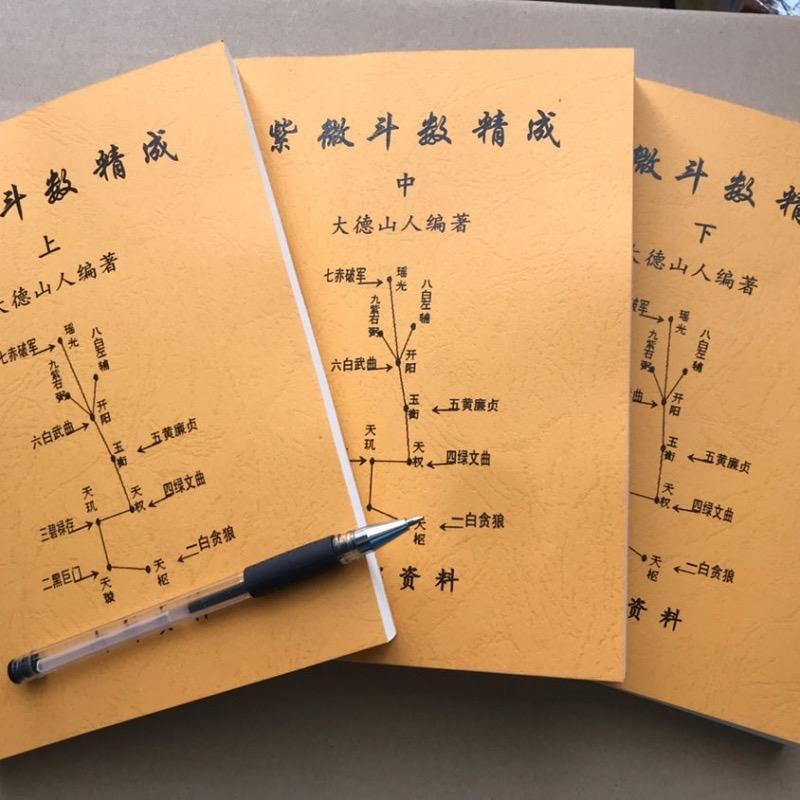 斗数精成
上
大德山人编著
七赤破军
瑶光
八白左辅
九紫右弼
六白武曲
开阳
玉衡
五黄廉贞
天玑
天权
四绿文曲
三碧禄存
二黑巨门
天璇
天枢
一白贪狼
紫微斗数精成
中
大德山人编著
七赤破军
瑶光
八白左辅
九紫右弼
六白武曲
开阳
玉衡
五黄廉贞
天玑
天权
四绿文曲
天枢
一白贪狼
资料
微斗数精
下
大德山人编著
瑶光
八白左辅
九紫右弼
曲
开阳
玉衡
五黄廉贞
天权
四绿文曲
天枢
一白贪狼
资料